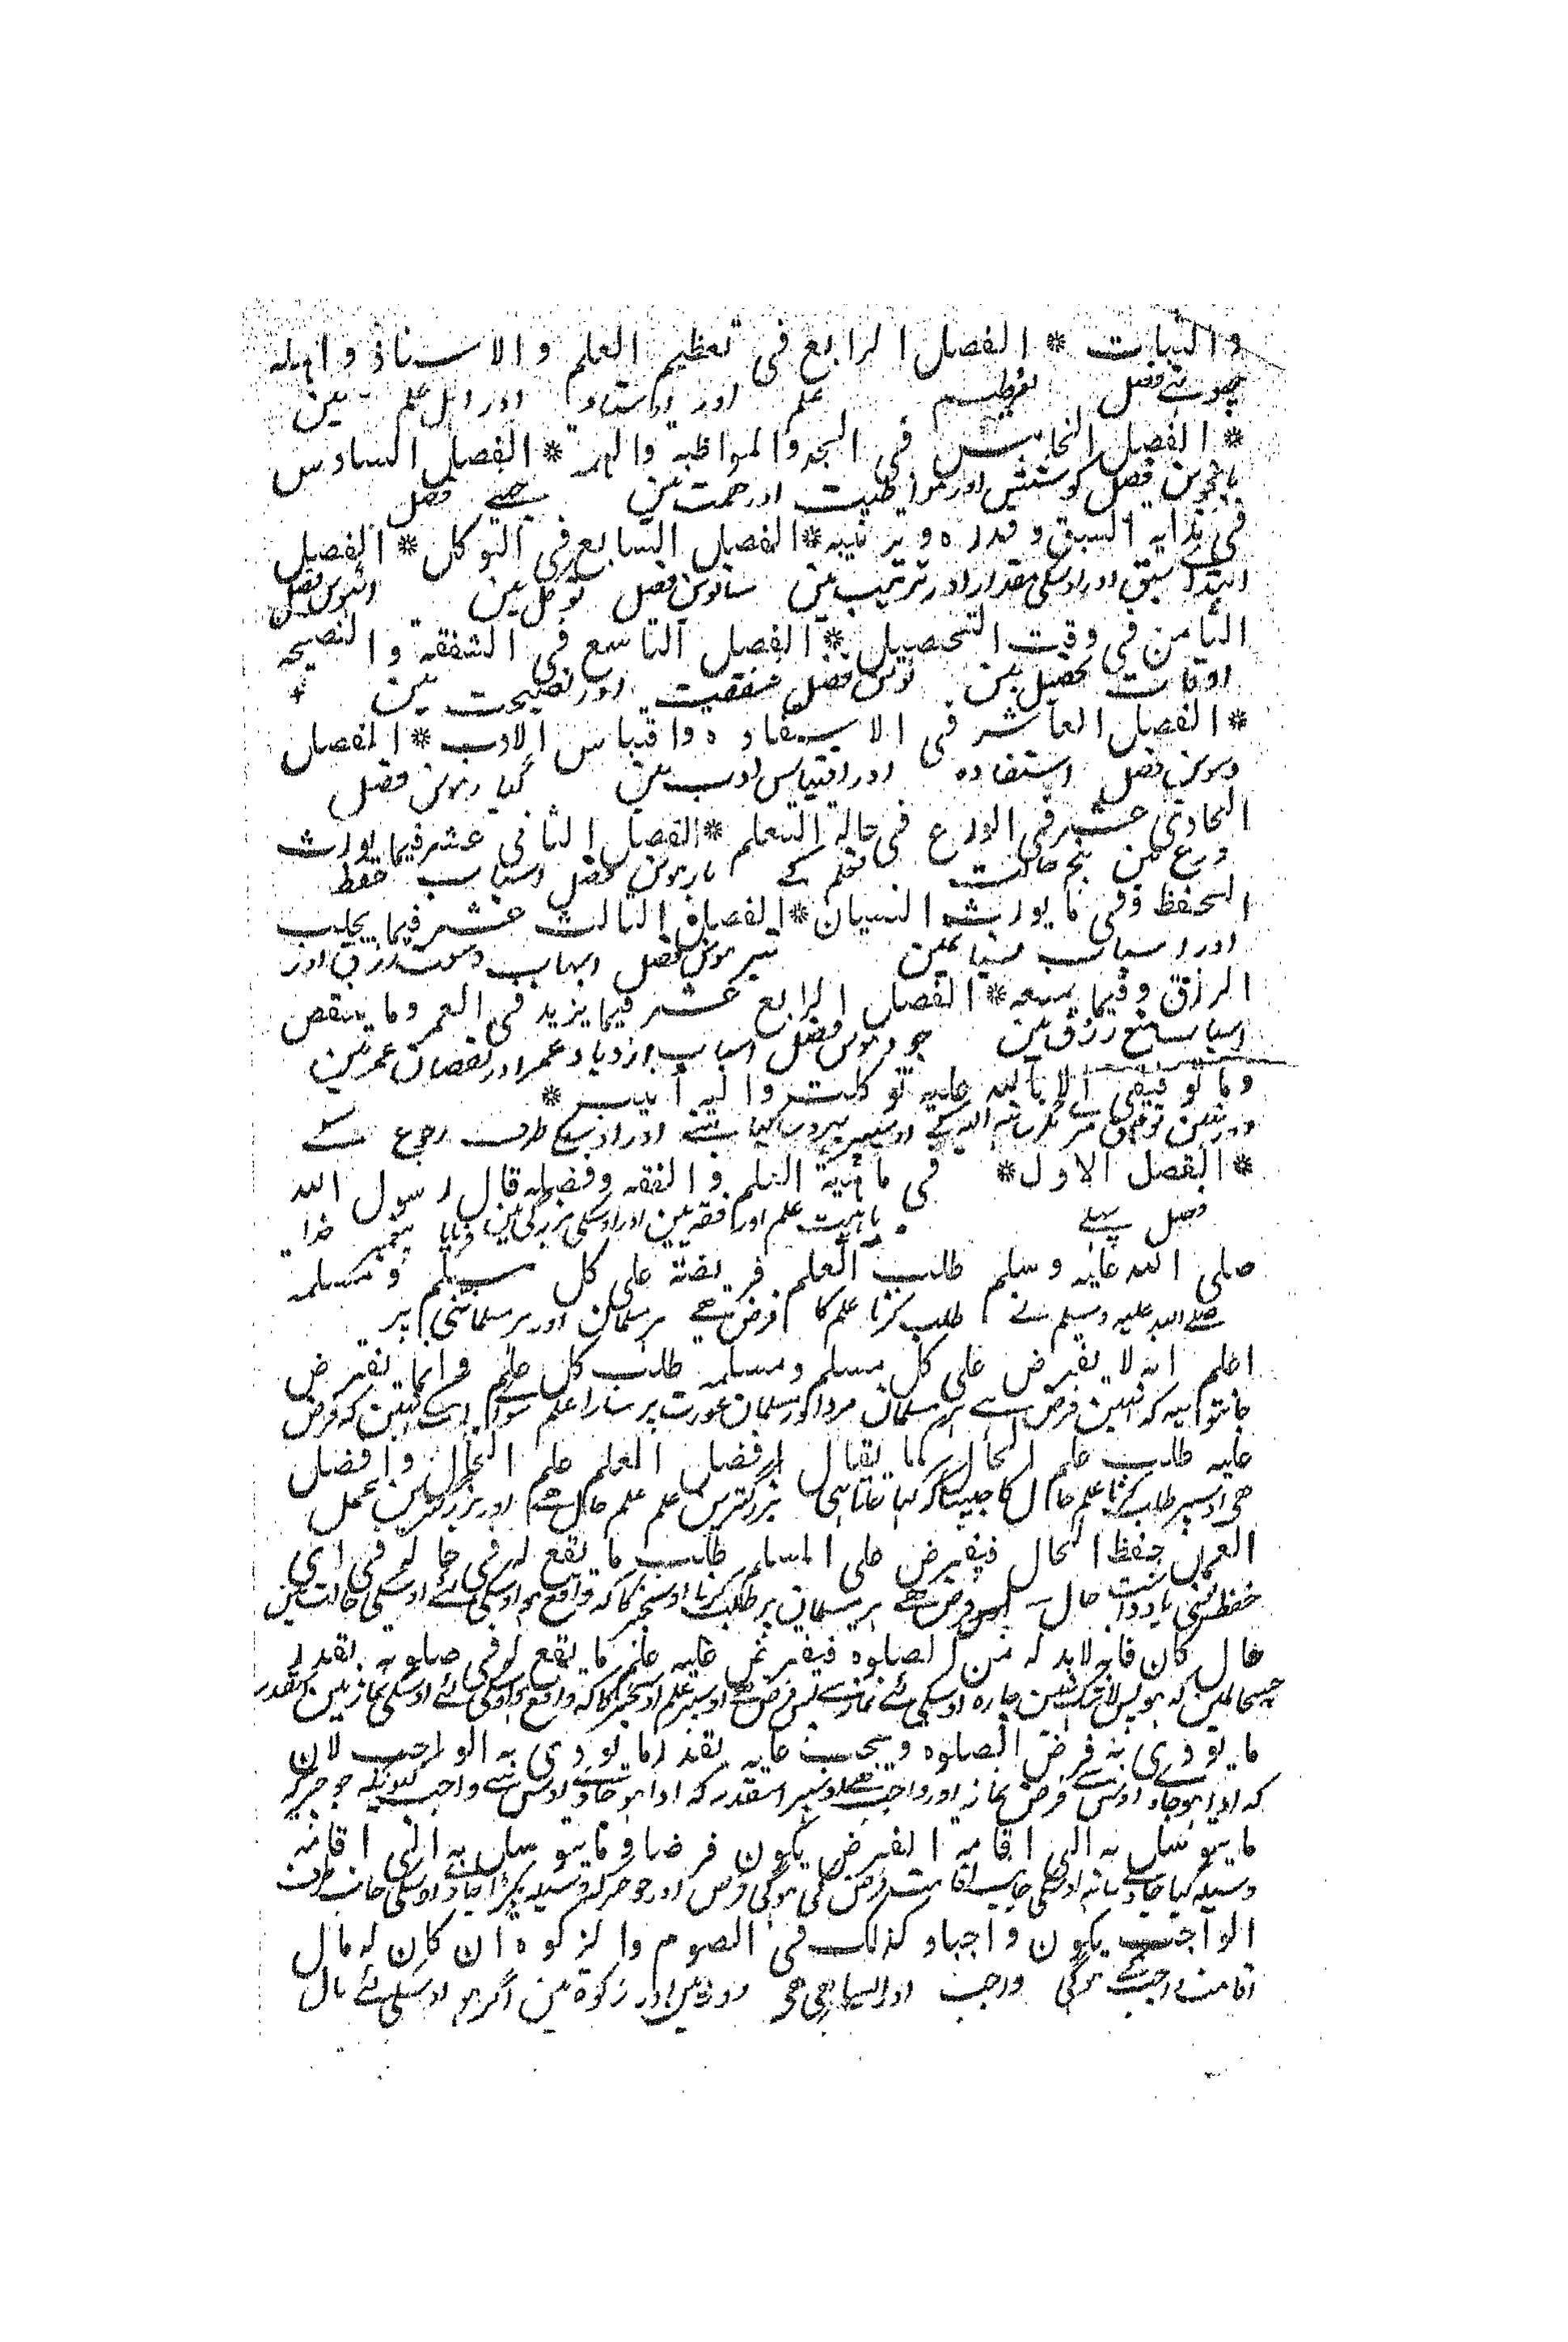 والثبات * الفصل الرابع فی تعظیم العلم والاستاذ واهله
چوتھے فصل تعظیم علم اور اوستاد اور اہل علم مین
* الفصل الخامس فی الجد والمواظبة والهمة * الفصل السادس
پانچوین فصل کوشش اور مواظبت اور ہمت مین چھٹے فصل
فی بدایة السبق وقدره وترتیبه * الفصل السابع فی التوکل * الفصل
ابتداے سبق اور اوسکی مقدار اور ترتیب مین ساتوین فصل توکل مین اٹھوین فصل
الثامن فی وقت التحصیل * الفصل التاسع فی الشفقة والنصیحة
اوقات تحصیل مین نوین فصل شفقت اور نصیحت مین
* الفصل العاشر فی الاستفاده واقتباس الادب * الفصل
دسوین فصل استفاده اور اقتباس ادب مین گیارہوین فصل
الحادی عشر فی الورع فی حالة التعلم * الفصل الثانی عشر فیما یورث
ورع مین بیچ حالت تعلم کے بارہوین فصل اسباب حفظ
الحفظ وفی ما یورث النسیان * الفصل الثالث عشر فیما یجلب
اور اسباب نسیان مین تیرہوین فصل اسباب وسعت رزق اور
الرزق وفیما یمنعه * الفصل الرابع عشر فیما یزید فی العمر وما ینقص
اسباب منع رزق مین چودہوین فصل اسباب ازدیاد عمر اور نقصان عمر مین
وما توفیقی الا بالله علیه توکلت والیه انیب *
اور نہین توفیق میرے مگر ساتھ اللہ کے اوسپر سپرد کیا مینے اور اوسیکے طرف رجوع کے
* الفصل الاول * فی ماهیة العلم والفقه وفضله قال رسول الله
فصل پہلے ماہیت علم اور فقہ مین اور اوسکی بزرگی مین فرمایا پیغمبر خدا
صلی الله علیه وسلم طلب العلم فریضة علی کل مسلم ومسلمة
صلے اللہ علیہ وسلم نے طلب کرنا علم کا فرض ہے ہر مسلمان اور ہر مسلمانتی پر
اعلم انه لا یفترض علی کل مسلم ومسلمة طلب کل علم وانما یفترض
جانتو یہ کہ نہین فرض ہے ہر مسلمان مرد اور مسلمان عورت پر سارا علم سواے اسکے نہین کہ فرض
علیه طلب علم الحال کما یقال افضل العلم علم الحال وافضل
ہی اوسپر طلب کرنا علم حال کا جیسا کہ کہا جاتا ہی بزرگترین علم علم حال ہے اور بزرگترین عمل
العمل حفظ الحال فیفترض علی المسلم طلب ما یقع له فی حاله فی ای
حفظ یعنی یادداشت حال فرض ہے ہر مسلمان پر طلب کرنا اوسچیز کا کہ واقع ہو اوسکی لئے اوسکی حالت مین
حال کان فانه لا بد له من الصلوة فیفترض علیه علم ما یقع له فی صلوته بقدر
جسحالمین کہ ہو پس لاشک نہین چارہ اوسکی لئے نماز سے پس فرض ہے اوسپر علم اوسچیز کا کہ واقع ہو اوسکی لئے اوسکی نماز مین بقدر
ما یودی به فرض الصلوة ویجب علیه بقدر ما یودی به الواجب لان
کہ ادا ہو جاوے اوس سے فرض نماز اور واجب ہے اوسپر اسقدر کہ ادا ہو جاوے اوس سے واجب کیونکہ جو چیز کہ
ما یتوسل به الی اقامة الفرض یکون فرضا وما یتوسل به الی اقامة
وسیلہ کیا جاوے ساتھ اوسکی جانب اقامت فرض کی ہوگی فرض اور جو چیز کہ وسیلہ پکڑا جاوے اوسکی جانب طرف
الواجب یکون واجبا وکذلک فی الصوم والزکوة ان کان له مال
اقامت واجب کے ہوگی واجب اور ایسا ہی ہی روزہ مین اور زکوة مین اگر ہو اوسکی لئے مال